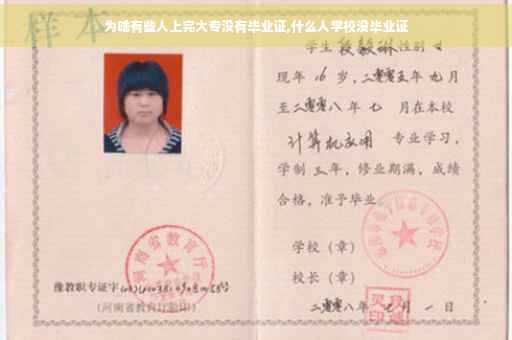 为啥有些人上完大专没有毕业证,什么人学校没毕业证
样本
学生 段毅琳 性别 女
现年 16 岁，二零零五年 九月
至二零零八 年 七 月在本校
计算机应用 专业学习，
学制 三 年，修业期满，成绩
合格，准予毕业
学校（章）
校长（章）
二零零八年 七月 一 日
河南省教育厅
豫教职专证字
(河南省教育厅验印)